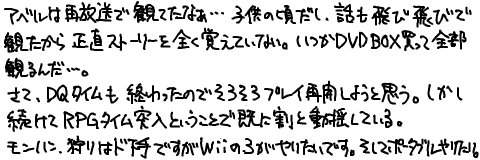 アベルは再放送で観てたなぁ… 子供の頃だし、話も飛び飛びで
観たから正直ストーリーを全く覚えていない。いつかDVD BOX買って全部
観るんだ…。
さて、DQタイムも終わったのでそろそろプレイ再開しようと思う。しかし
続けてRPGタイム突入ということで既に割と動揺している。
モンハン、狩りはド下手ですがWiiの3がやりたいです。そしてポータブルもやりたい。